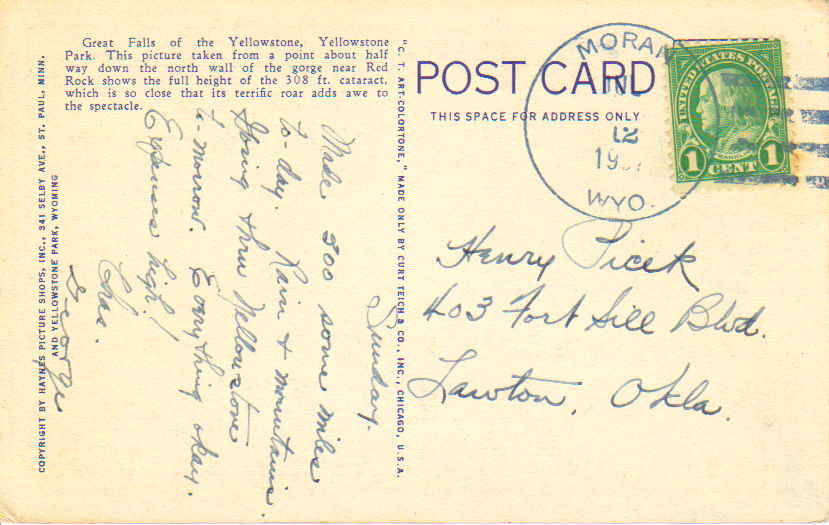 Great Falls of the Yellowstone, Yellowstone
Park. This picture taken from a point about half
way down the north wall of the gorge near Red
Rock shows the full height of the 308 ft. cataract,
which is so close that its terrific roar adds awe to
the spectacle.
COPYRIGHT BY HAYNES PICTURE SHOPS, INC., 341 SELBY AVE., ST. PAUL, MINN.
AND YELLOWSTONE PARK, WYOMING
"C. T. ART-COLORTONE," MADE ONLY BY CURT TEICH & CO., INC., CHICAGO, U.S.A.
Sunday.
Made 200 some miles
to-day. Rain & mountains.
Going thru Yellowstone
to-morrow. Everything okay.
Expenses high!
Chas.
George
POST CARD
THIS SPACE FOR ADDRESS ONLY
MORAN
12
WYO.
UNITED STATES POSTAGE
1 CENT 1
Henry Picek
403 Fort Sill Blvd.
Lawton, Okla.